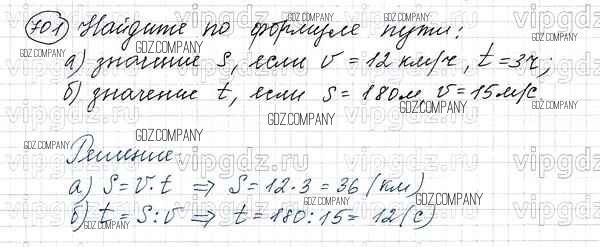 701 Найдите по формуле пути:
а) значение s, если v = 12 км/ч, t = 3ч;
б) значение t, если s = 180м, v = 15м/с
Решение.
а) S = v · t ⇒ S = 12 · 3 = 36 (км)
б) t = S : v ⇒ t = 180 : 15 = 12 (с)